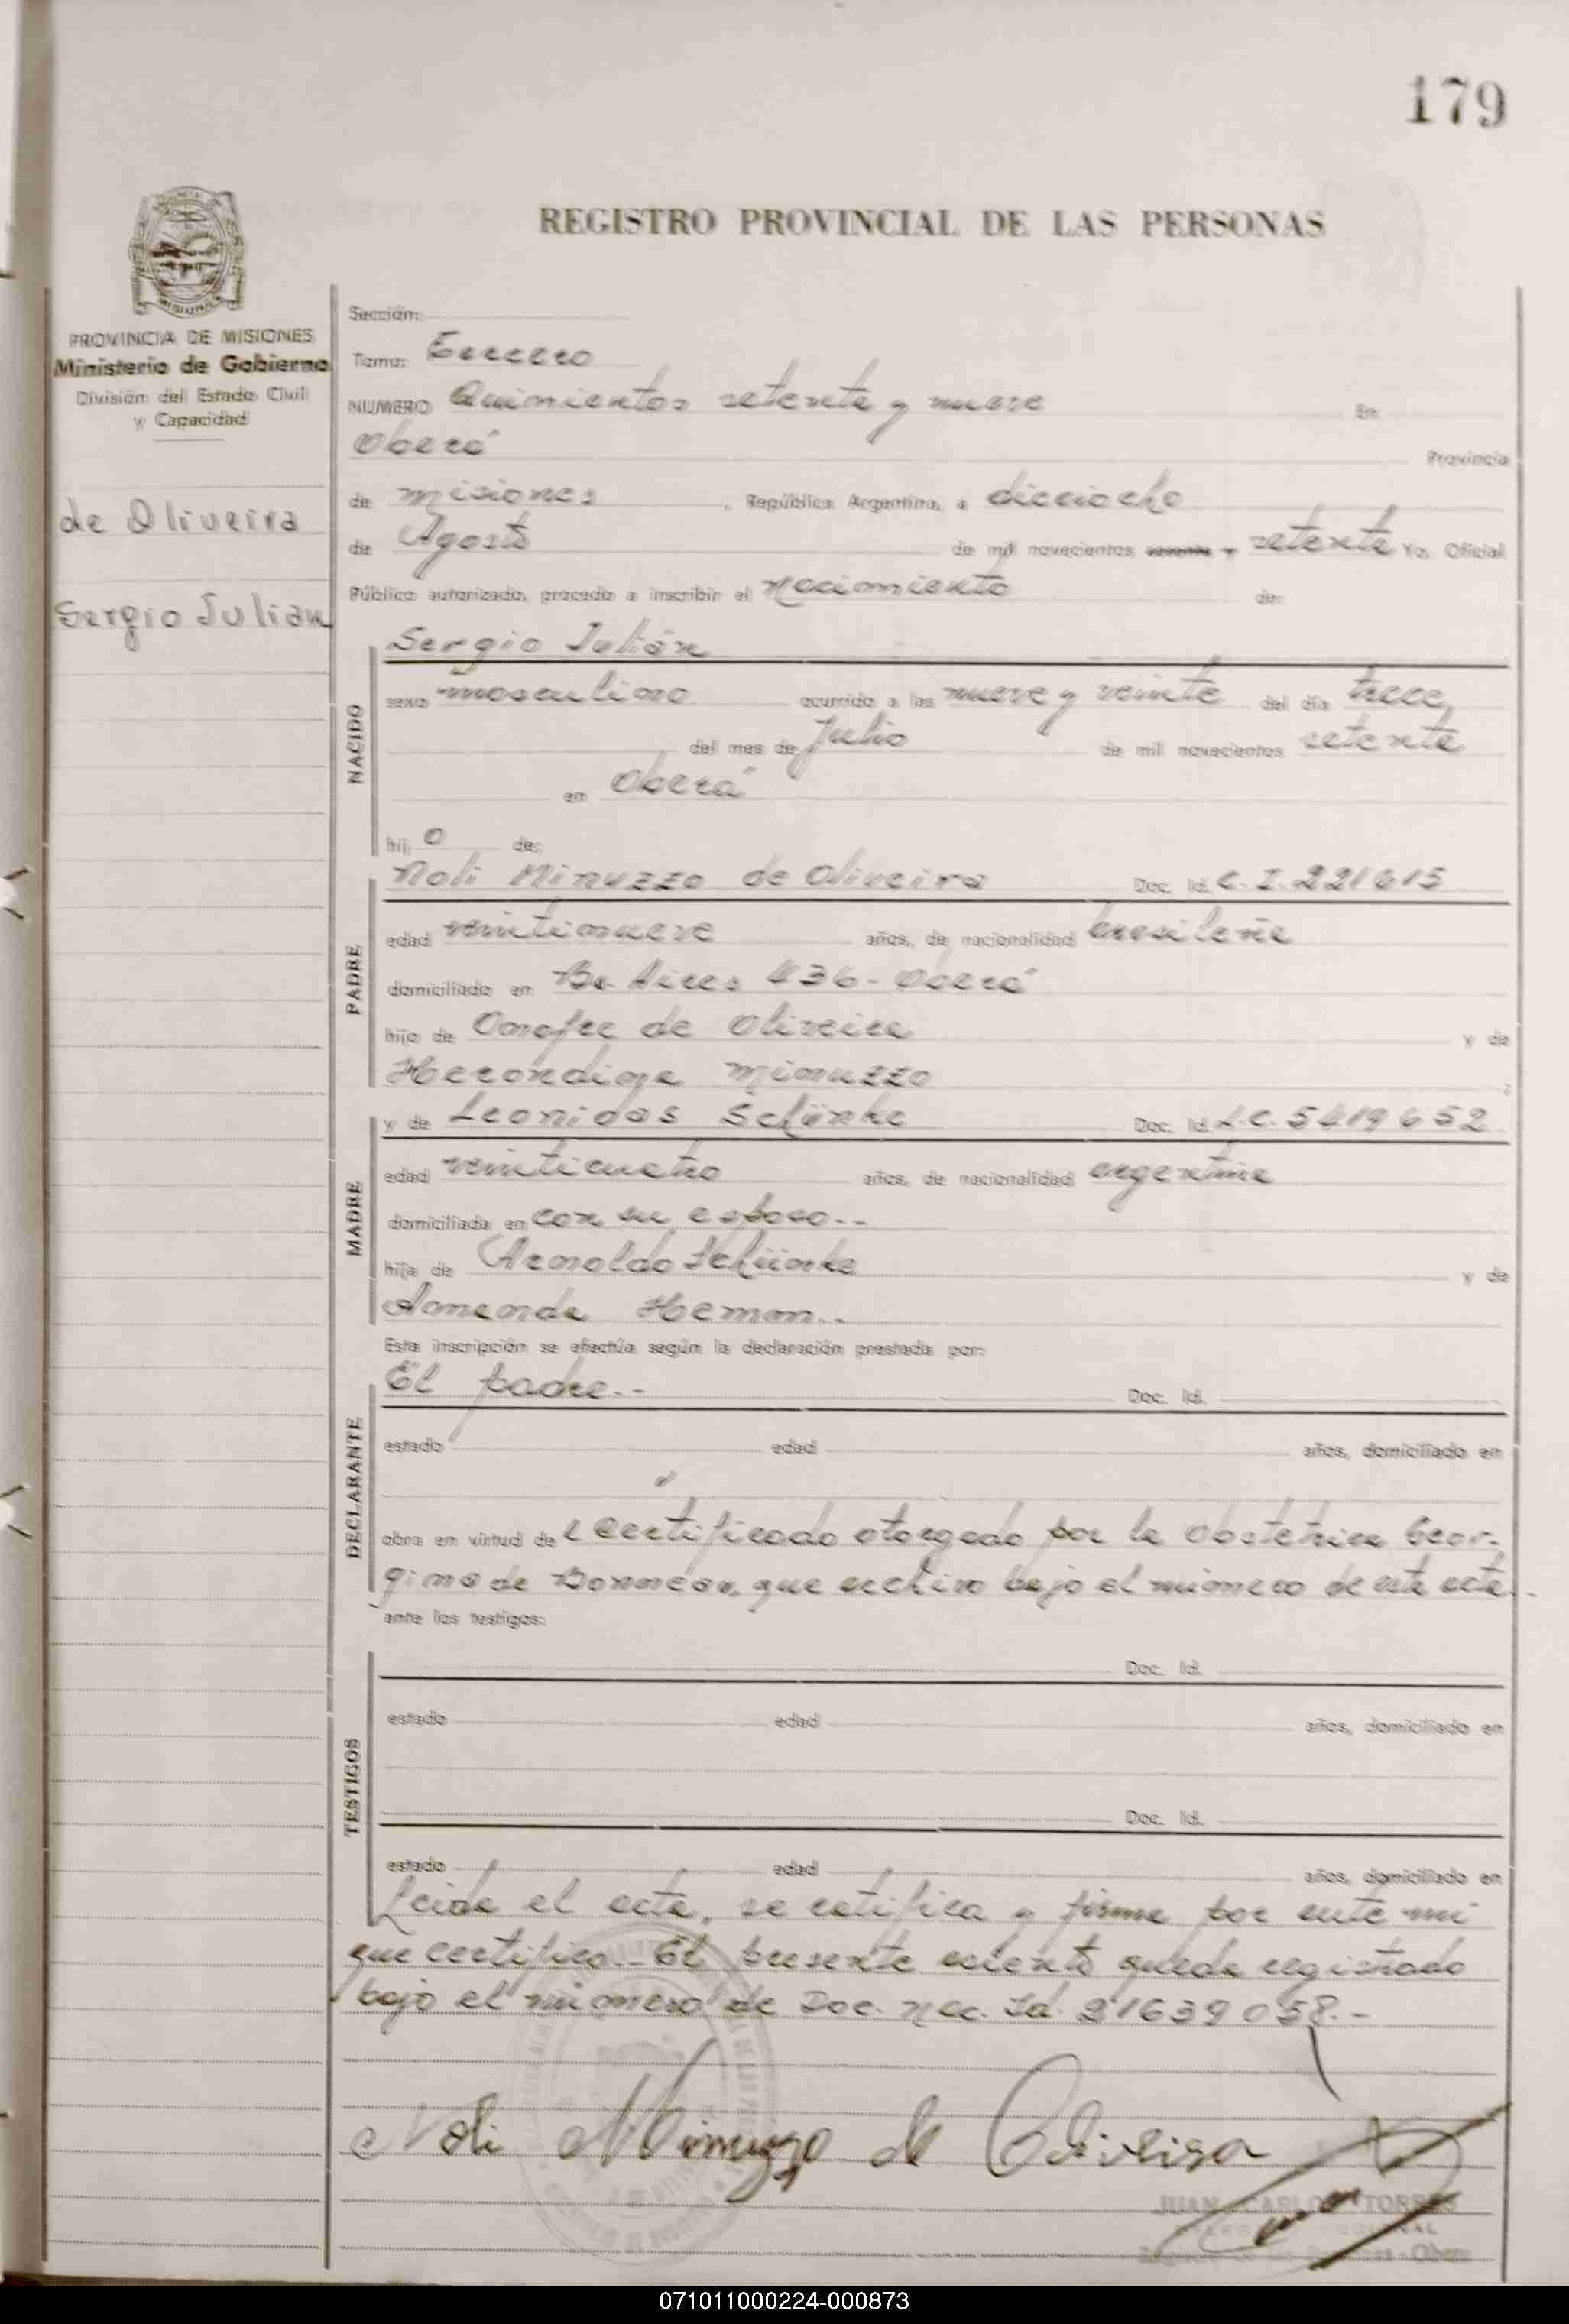 179
REGISTRO PROVINCIAL DE LAS PERSONAS
PROVINCIA DE MISIONES
Ministerio de Gobierno
División del Estado Civil
y Capacidad
de Oliveira
Sergio Julian
Sección:
Tomo: Tercero
NUMERO Quinientos setenta y nueve En
Oberá Provincia
de Misiones, República Argentina, a dieciocho
de Agosto de mil novecientos sesenta y setenta Yo, Oficial
Público autorizado, procedo a inscribir el Nacimiento de:
NACIDO
Sergio Julián
sexo masculino ocurrido a las nueve y veinte del día trece
del mes de Julio de mil novecientos setenta
en Oberá
hijo de:
PADRE
Noli Minuzzo de Oliveira Doc. Id. C. I. 221615
edad veintinueve años, de nacionalidad brasileña
domiciliado en Bs. Aires 436 - Oberá
hijo de Onofre de Oliveira y de
Herondina Minuzzo
MADRE
y de Leonidas Schünke Doc. Id. L.C. 5419652
edad veinticuatro años, de nacionalidad argentina
domiciliada en con su esposo.--
hija de Arnoldo Schünke y de
Amanda Heman.--
Esta inscripción se efectúa según la declaración prestada por:
DECLARANTE
El padre.-- Doc. Id.
estado edad años, domiciliado en
obra en virtud de l certificado otorgado por la Obstetrica Geor-
gina de que archivo bajo el número de esta acta.-
ante los testigos:
TESTIGOS
Doc. Id.
estado edad años, domiciliado en
Doc. Id.
estado edad años, domiciliado en
Leida el acta, se ratifica y firma por ante mi
que certifico.- El presente asiento queda registrado
bajo el número de Doc. Nac. Id. 21639058.-
Noli Minuzzo de Oliveira
JUAN CARLOS TORRES
071011000224-000873